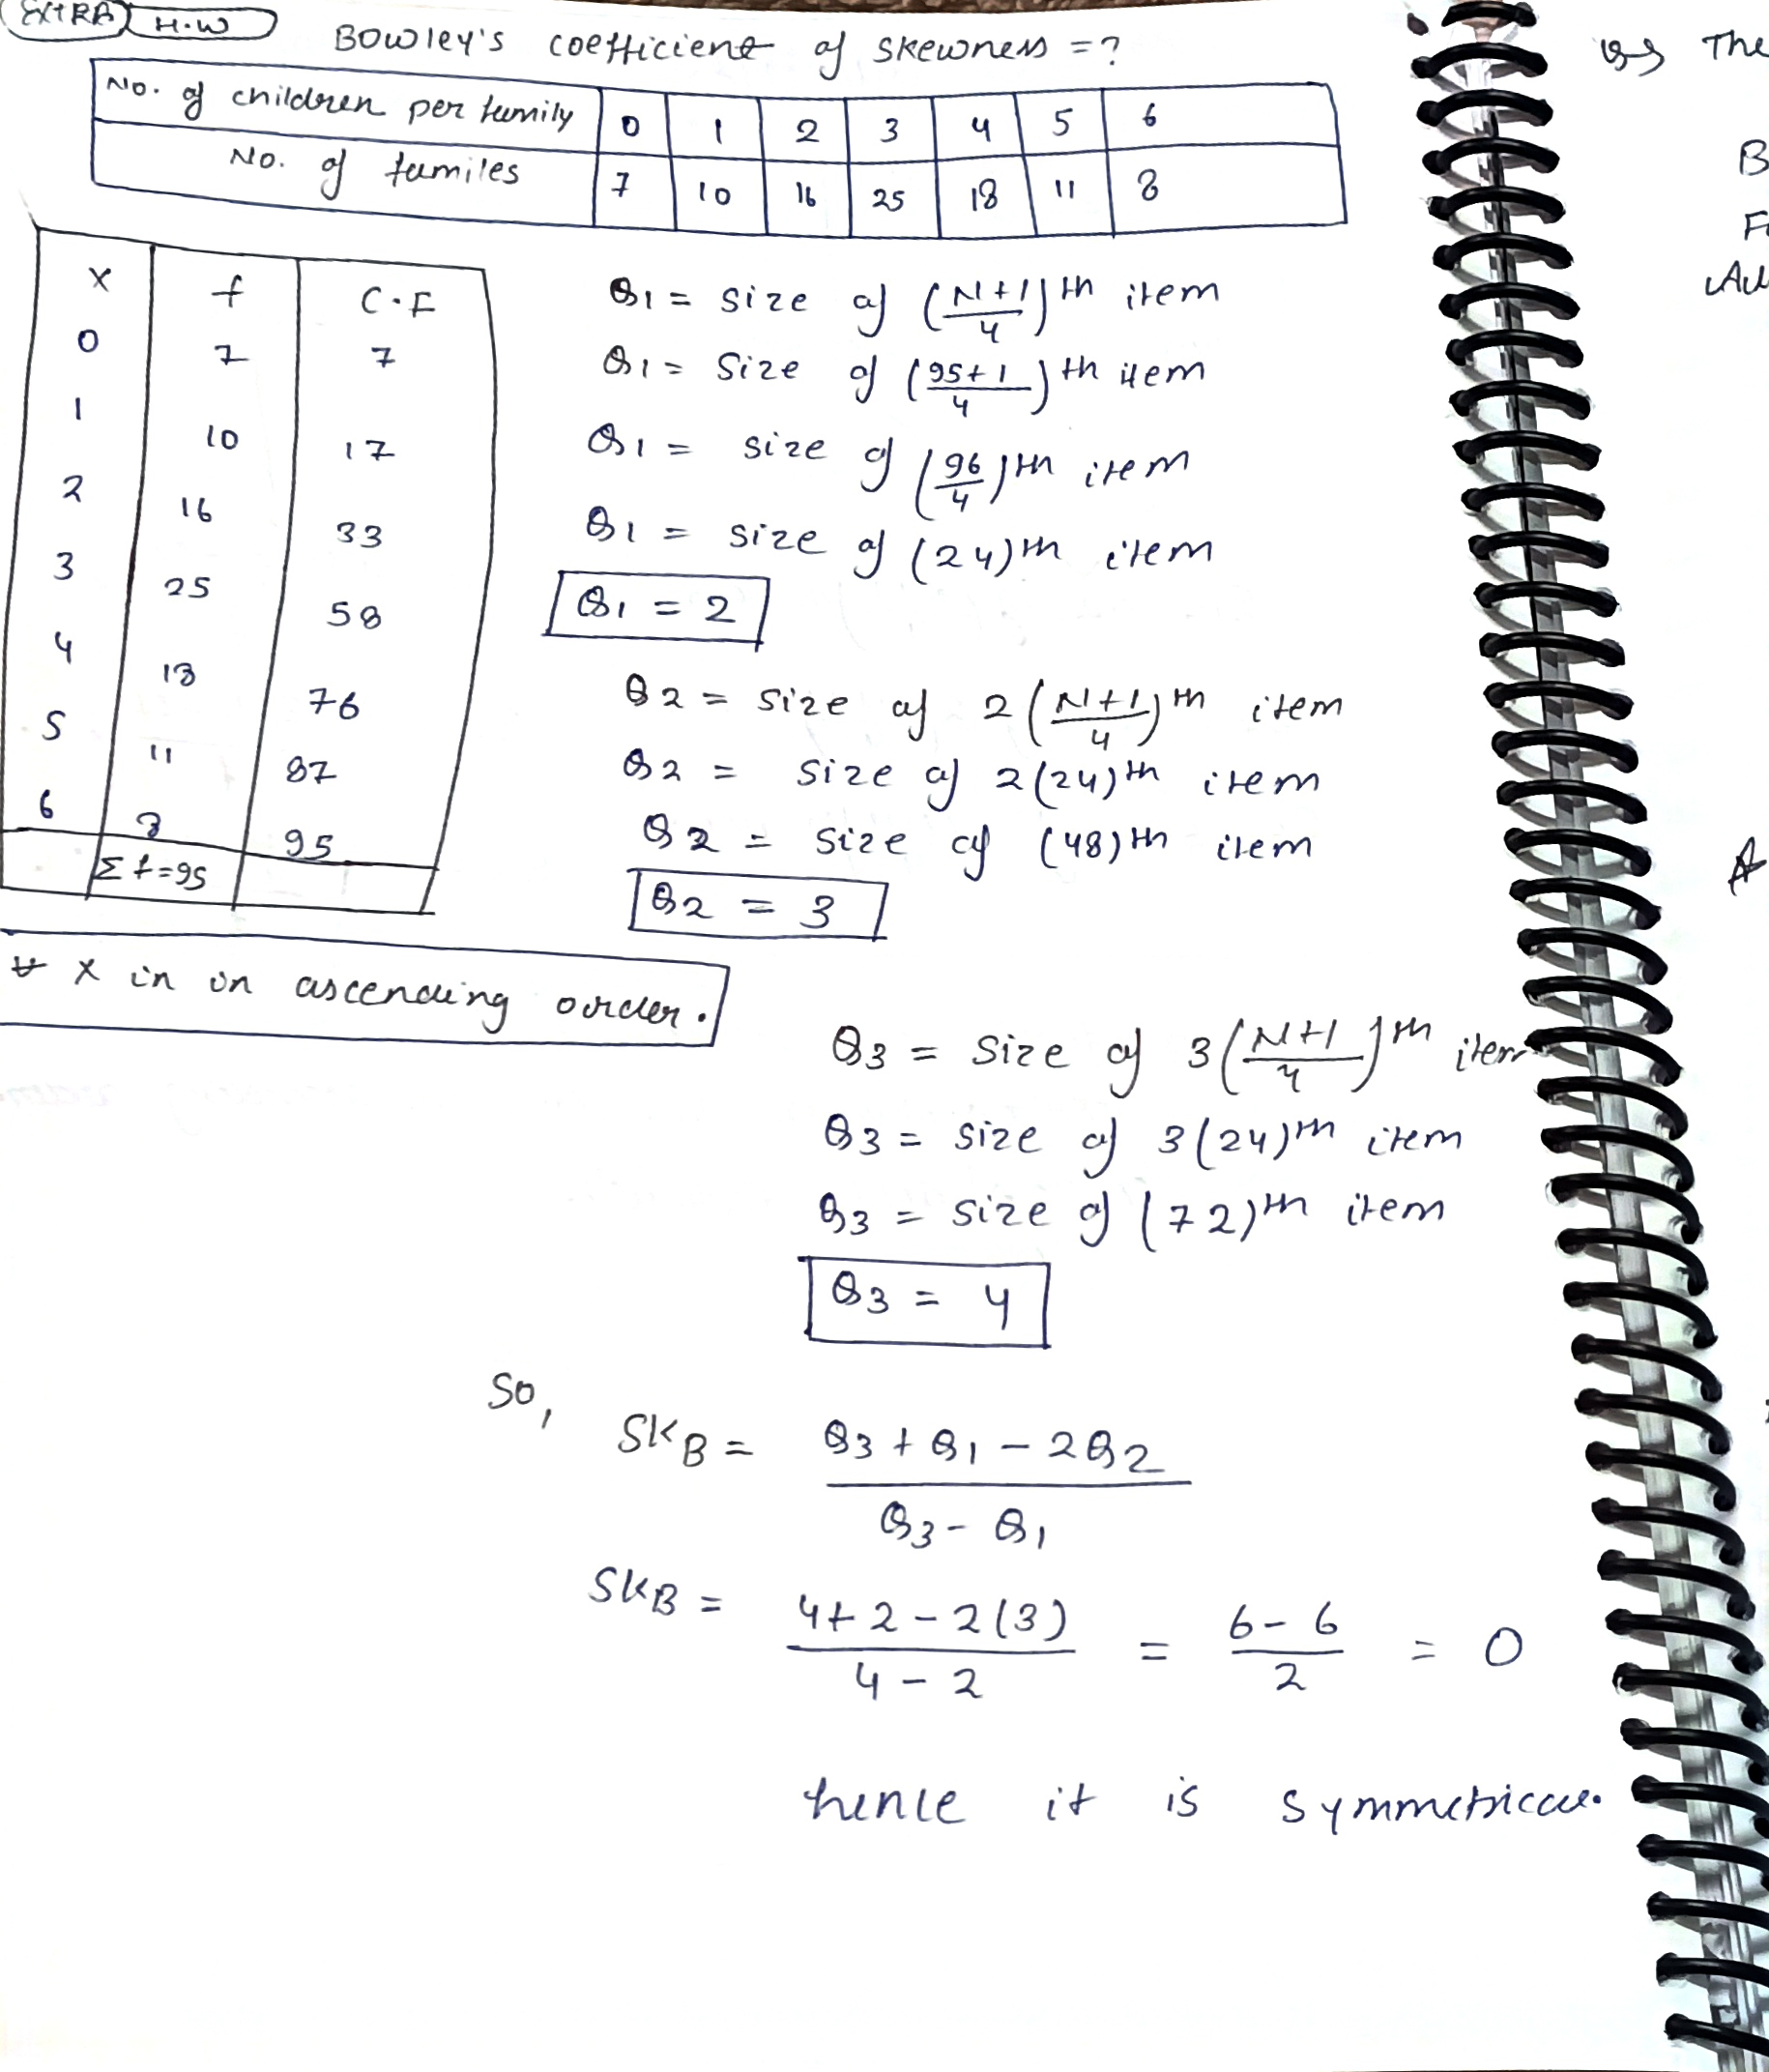 EXTRA H.W
Bowley's coefficient of skewness = ?
No. of children per family 0 1 2 3 4 5 6
No. of familes 7 10 16 25 18 11 8
X f C.F
0 7 7
1 10 17
2 16 33
3 25 58
4 18 76
5 11 87
6 8 95
Σf=95
X in in ascending order.
Q1 = size of (N+1/4)th item
Q1 = Size of (95+1/4)th item
Q1 = size of (96/4)th item
Q1 = size of (24)th item
Q1 = 2
Q2 = size of 2(N+1/4)th item
Q2 = size of 2(24)th item
Q2 = size of (48)th item
Q2 = 3
Q3 = size of 3(N+1/4)th item
Q3 = size of 3(24)th item
Q3 = size of (72)th item
Q3 = 4
So,
SKB = Q3 + Q1 - 2Q2 / Q3 - Q1
SKB = 4+2-2(3) / 4-2 = 6-6 / 2 = 0
hence it is symmetrical.
The
B